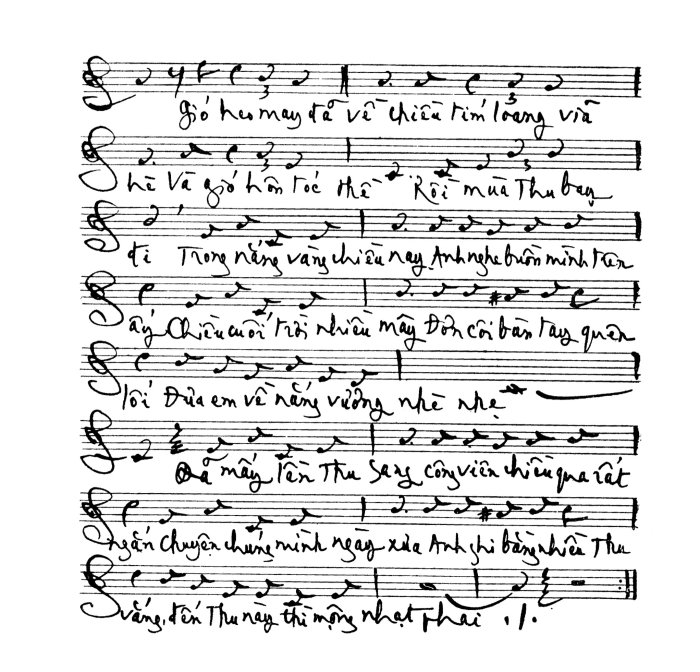 Gió heo may đã về chiều tím loang vỉa
hè Và gió hôn tóc thề Rồi mùa Thu bay
đi Trong nắng vàng chiều nay Anh nghe buồn mình trên
ấy Chiều cuối trời nhiều mây Đơn côi bàn tay quên
lối Đưa em về nắng vương nhè nhẹ
Đã mấy lần Thu sang công viên chiều qua rất
ngắn Chuyện chúng mình ngày xưa Anh ghi bằng nhiều Thu
vắng, đến Thu này thì mộng nhạt phai ./.